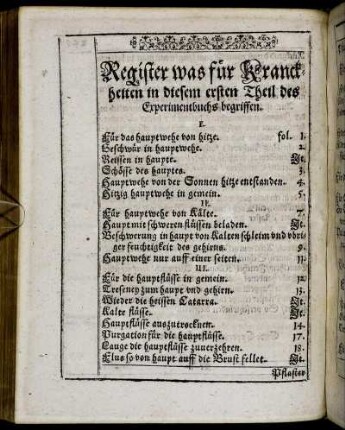 Register was für Kranck
heiten in diesem ersten Theil des
Experimentbuchs begriffen.
I.
Für das hauptwehe von hitze. fol. 1.
Geschwür in hauptwehe. 2.
Reissen in haupte. It.
Schösse des hauptes. 3.
Hauptwehe von der Sonnen hitze entstanden. 4.
Hitzig hauptwehe in gemein. 5.
II.
Für hauptwehe von Kälte. 7.
Haupt mit schweren flüssen beladen. It.
Beschwerung in haupt von Kalten schleim vnd vbri-
ger feuchtigkeit des gehirns. 9.
Hauptwehe nur auff einer seiten. 11.
III.
Für die hauptflüsse in gemein. 12.
Treseney zum haupt vnd gehirn. 13.
Wieder die heissen Catarra. It.
Kalte flüsse. It.
Hauptflüsse auszutrocknen. 14.
Purgation für die hauptflüsse. 17.
Lauge die hauptflüsse zuuerzehren. 18.
Flus so von haupt auff die Brust fellet. It.
Pflaster